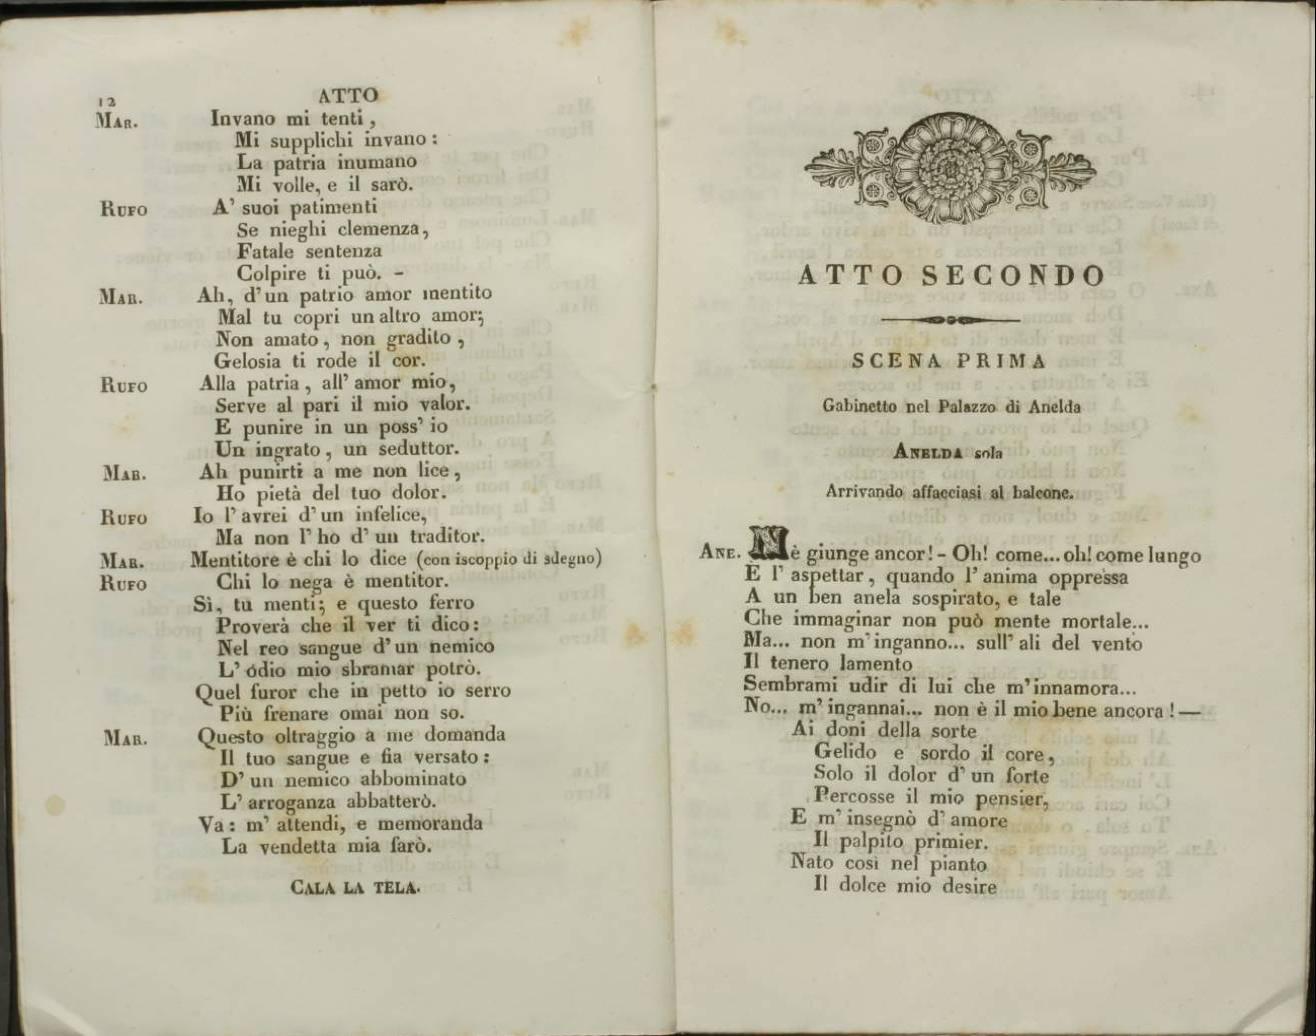 12 ATTO
MAR. Invano mi tenti ,
Mi supplichi invano :
La patria inumano
Mi volle, e il sarò.
RUFO A' suoi patimenti
Se nieghi clemenza,
Fatale sentenza
Colpire ti può. -
MAR. Ah, d' un patrio amor mentito
Mal tu copri un altro amor;
Non amato , non gradito ,
Gelosia ti rode il cor.
RUFO Alla patria , all' amor mio,
Serve al pari il mio valor.
E punire in un poss' io
Un ingrato , un seduttor.
MAR. Ah punirti a me non lice ,
Ho pietà del tuo dolor.
RUFO Io l' avrei d' un infelice,
Ma non l' ho d' un traditor.
MAR. Mentitore è chi lo dice (con iscoppio di sdegno)
RUFO Chi lo nega è mentitor.
Sì, tu menti; e questo ferro
Proverà che il ver ti dico :
Nel reo sangue d' un nemico
L' odio mio sbramar potrò.
Quel furor che in petto io serro
Più frenare omai non so.
MAR. Questo oltraggio a me domanda
Il tuo sangue e fia versato :
D' un nemico abbominato
L' arroganza abbatterò.
Va : m' attendi, e memoranda
La vendetta mia farò.
CALA LA TELA.
ATTO SECONDO
SCENA PRIMA
Gabinetto nel Palazzo di Anelda
ANELDA sola
Arrivando affacciasi al balcone.
ANE. Nè giunge ancor! - Oh! come... oh! come lungo
È l' aspettar , quando l' anima oppressa
A un ben anela sospirato, e tale
Che immaginar non può mente mortale...
Ma... non m' inganno... sull' ali del vento
Il tenero lamento
Sembrami udir di lui che m' innamora...
No... m' ingannai... non è il mio bene ancora ! —
Ai doni della sorte
Gelido e sordo il core,
Solo il dolor d' un forte
Percosse il mio pensier,
E m' insegnò d' amore
Il palpito primier.
Nato così nel pianto
Il dolce mio desire